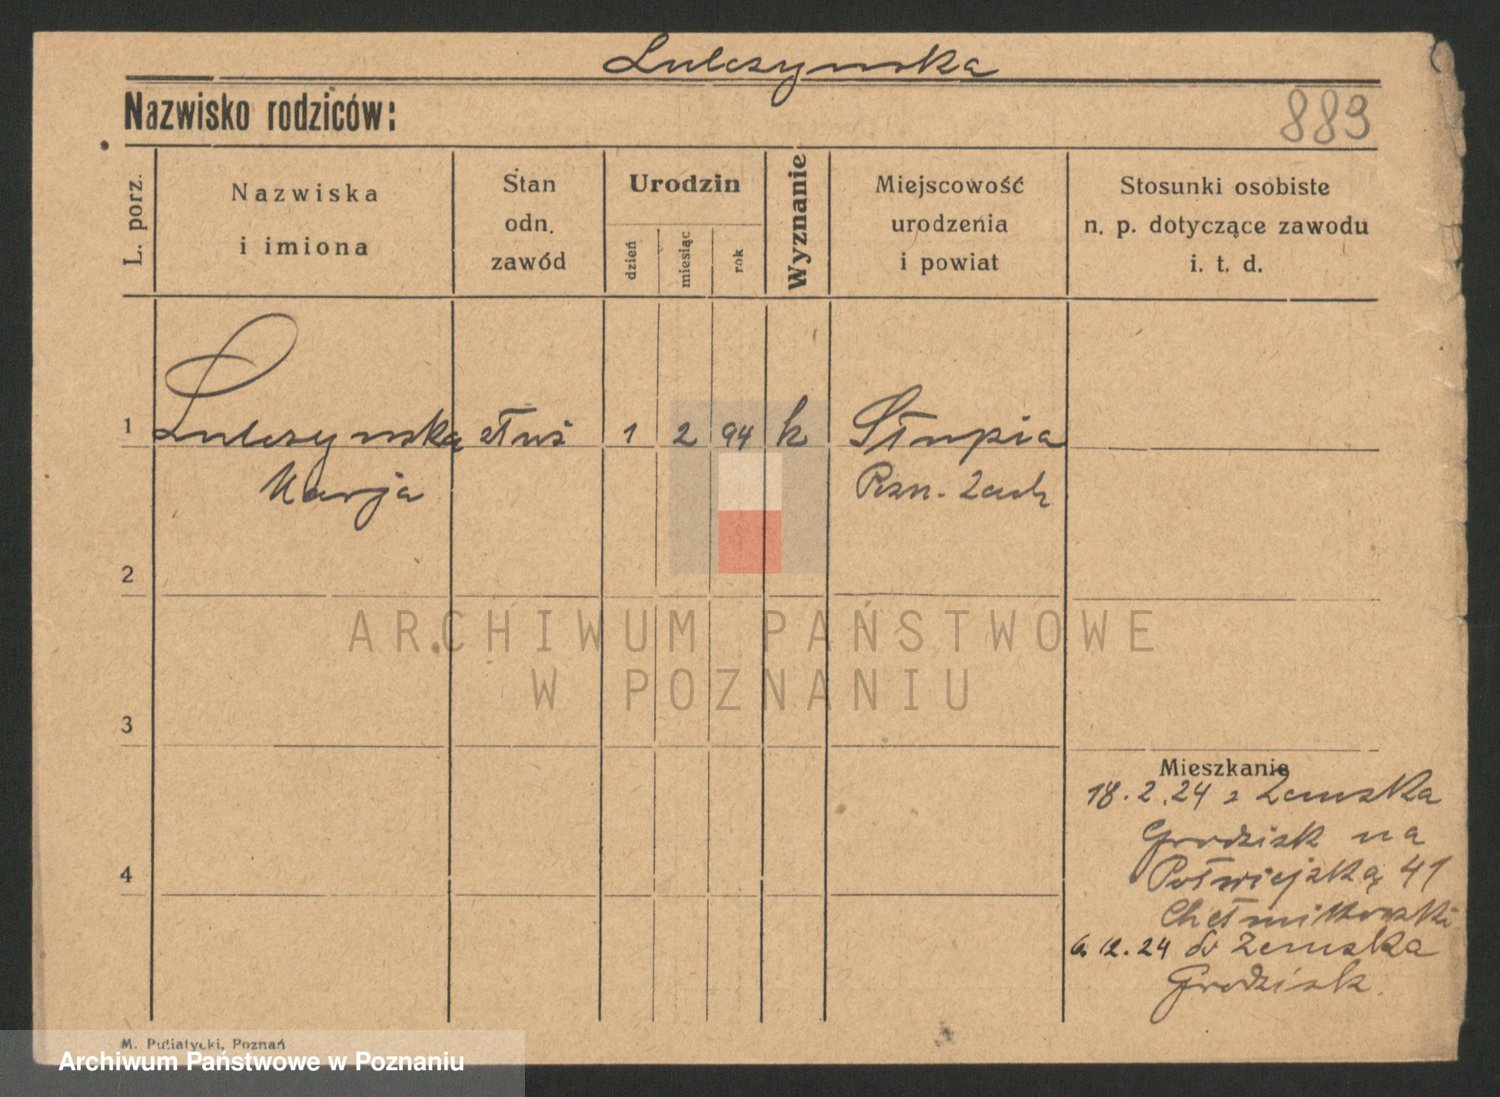 Lulczynska
Nazwisko rodziców:
883
L. porz.
Nazwiska
i imiona
Stan
odn.
zawód
Urodzin
dzień
miesiąc
rok
Wyznanie
Miejscowość
urodzenia
i powiat
Stosunki osobiste
n. p. dotyczące zawodu
i. t. d.
1 Lulczynska służ 1 2 94 k Słupia
Marja Pozn. Zach
2
ARCHIWUM PAŃSTWOWE
W POZNANIU
3
Mieszkanie
18.2.24 z Zemska
Grodzisk na
Półwiejską 41
Chełmikowski
6.12.24 do Zemska
Grodzisk.
4
M. Putiatycki, Poznań
Archiwum Państwowe w Poznaniu